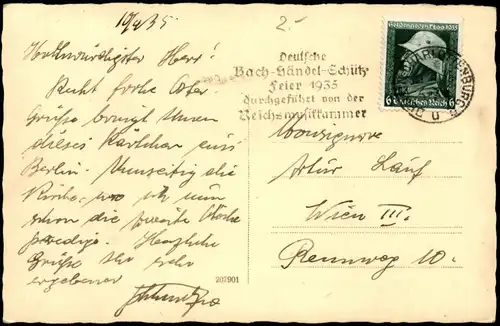 19/4 35
2.-
Hochwürdigster Herr!
Recht frohe Oster-
Grüße bringt Ihnen
dieses Kärtchen aus
Berlin. Umseitig die
Kirche, wo ich nun
schon die zweite Woche
predige. Herzliche
Grüße Ihr sehr
ergebener
Deutsche
Bach-Händel-Schütz
Feier 1935
durchgeführt von der
Reichsmusikkammer
Heldengedenktag 1935
6 Deutsches Reich 6
CHARLOTTENBURG
Monsignore
Artur Lauf
Wien III.
Rennweg 10.
207901